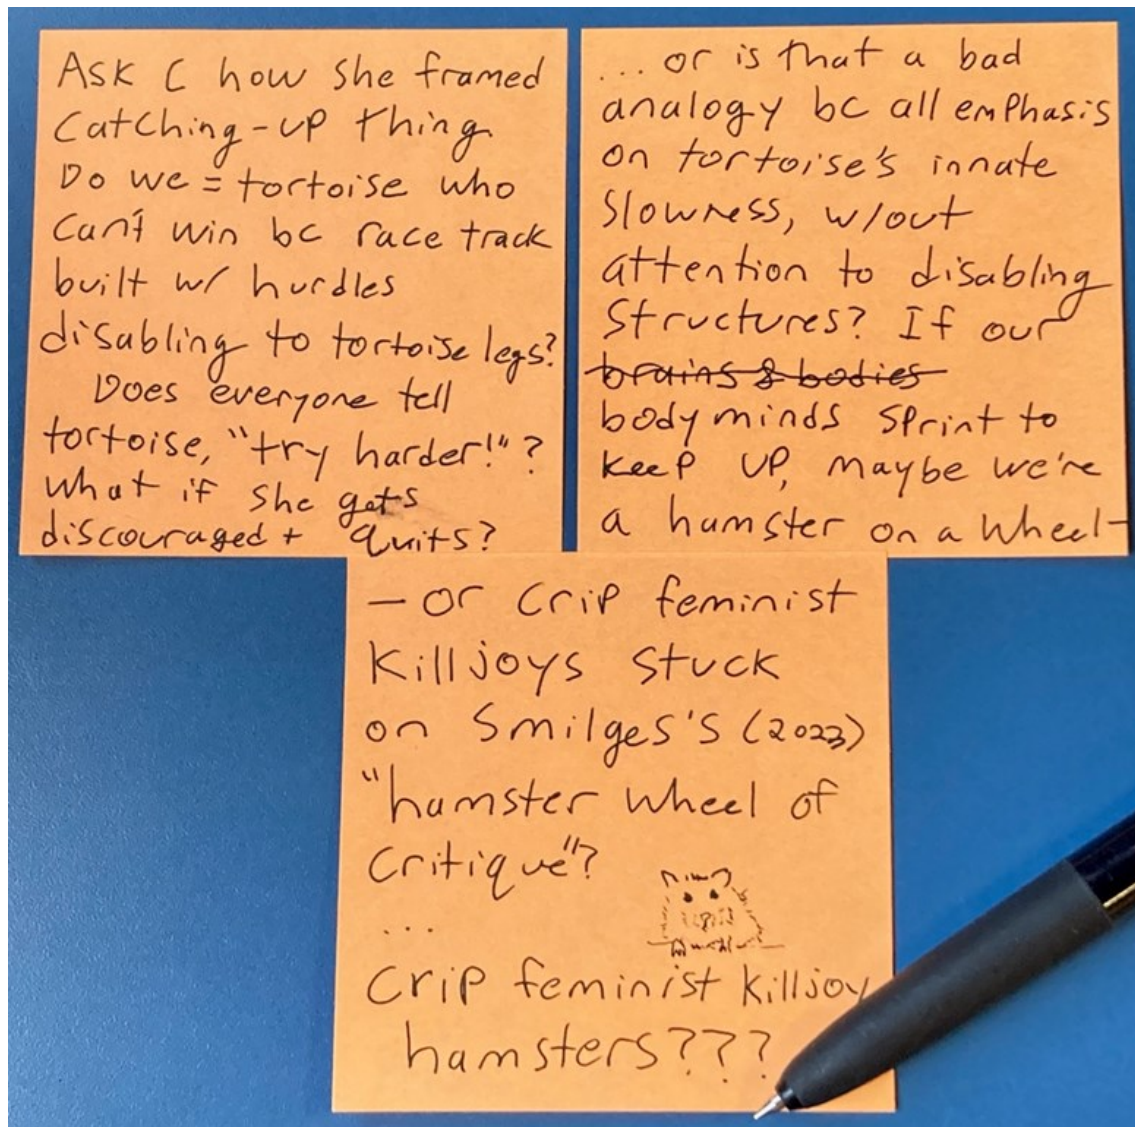 Ask C how she framed
catching-up thing.
Do we = tortoise who
can't win bc race track
built w/ hurdles
disabling to tortoise legs?
Does everyone tell
tortoise, "try harder!"?
What if she gets
discouraged + quits?
... or is that a bad
analogy bc all emphasis
on tortoise's innate
slowness, w/out
attention to disabling
structures? If our
brains & bodies
bodyminds sprint to
keep up, maybe we're
a hamster on a wheel-
- or crip feminist
killjoys stuck
on Smilges's (2023)
"hamster wheel of
critique"?
...
Crip feminist killjoy
hamsters???